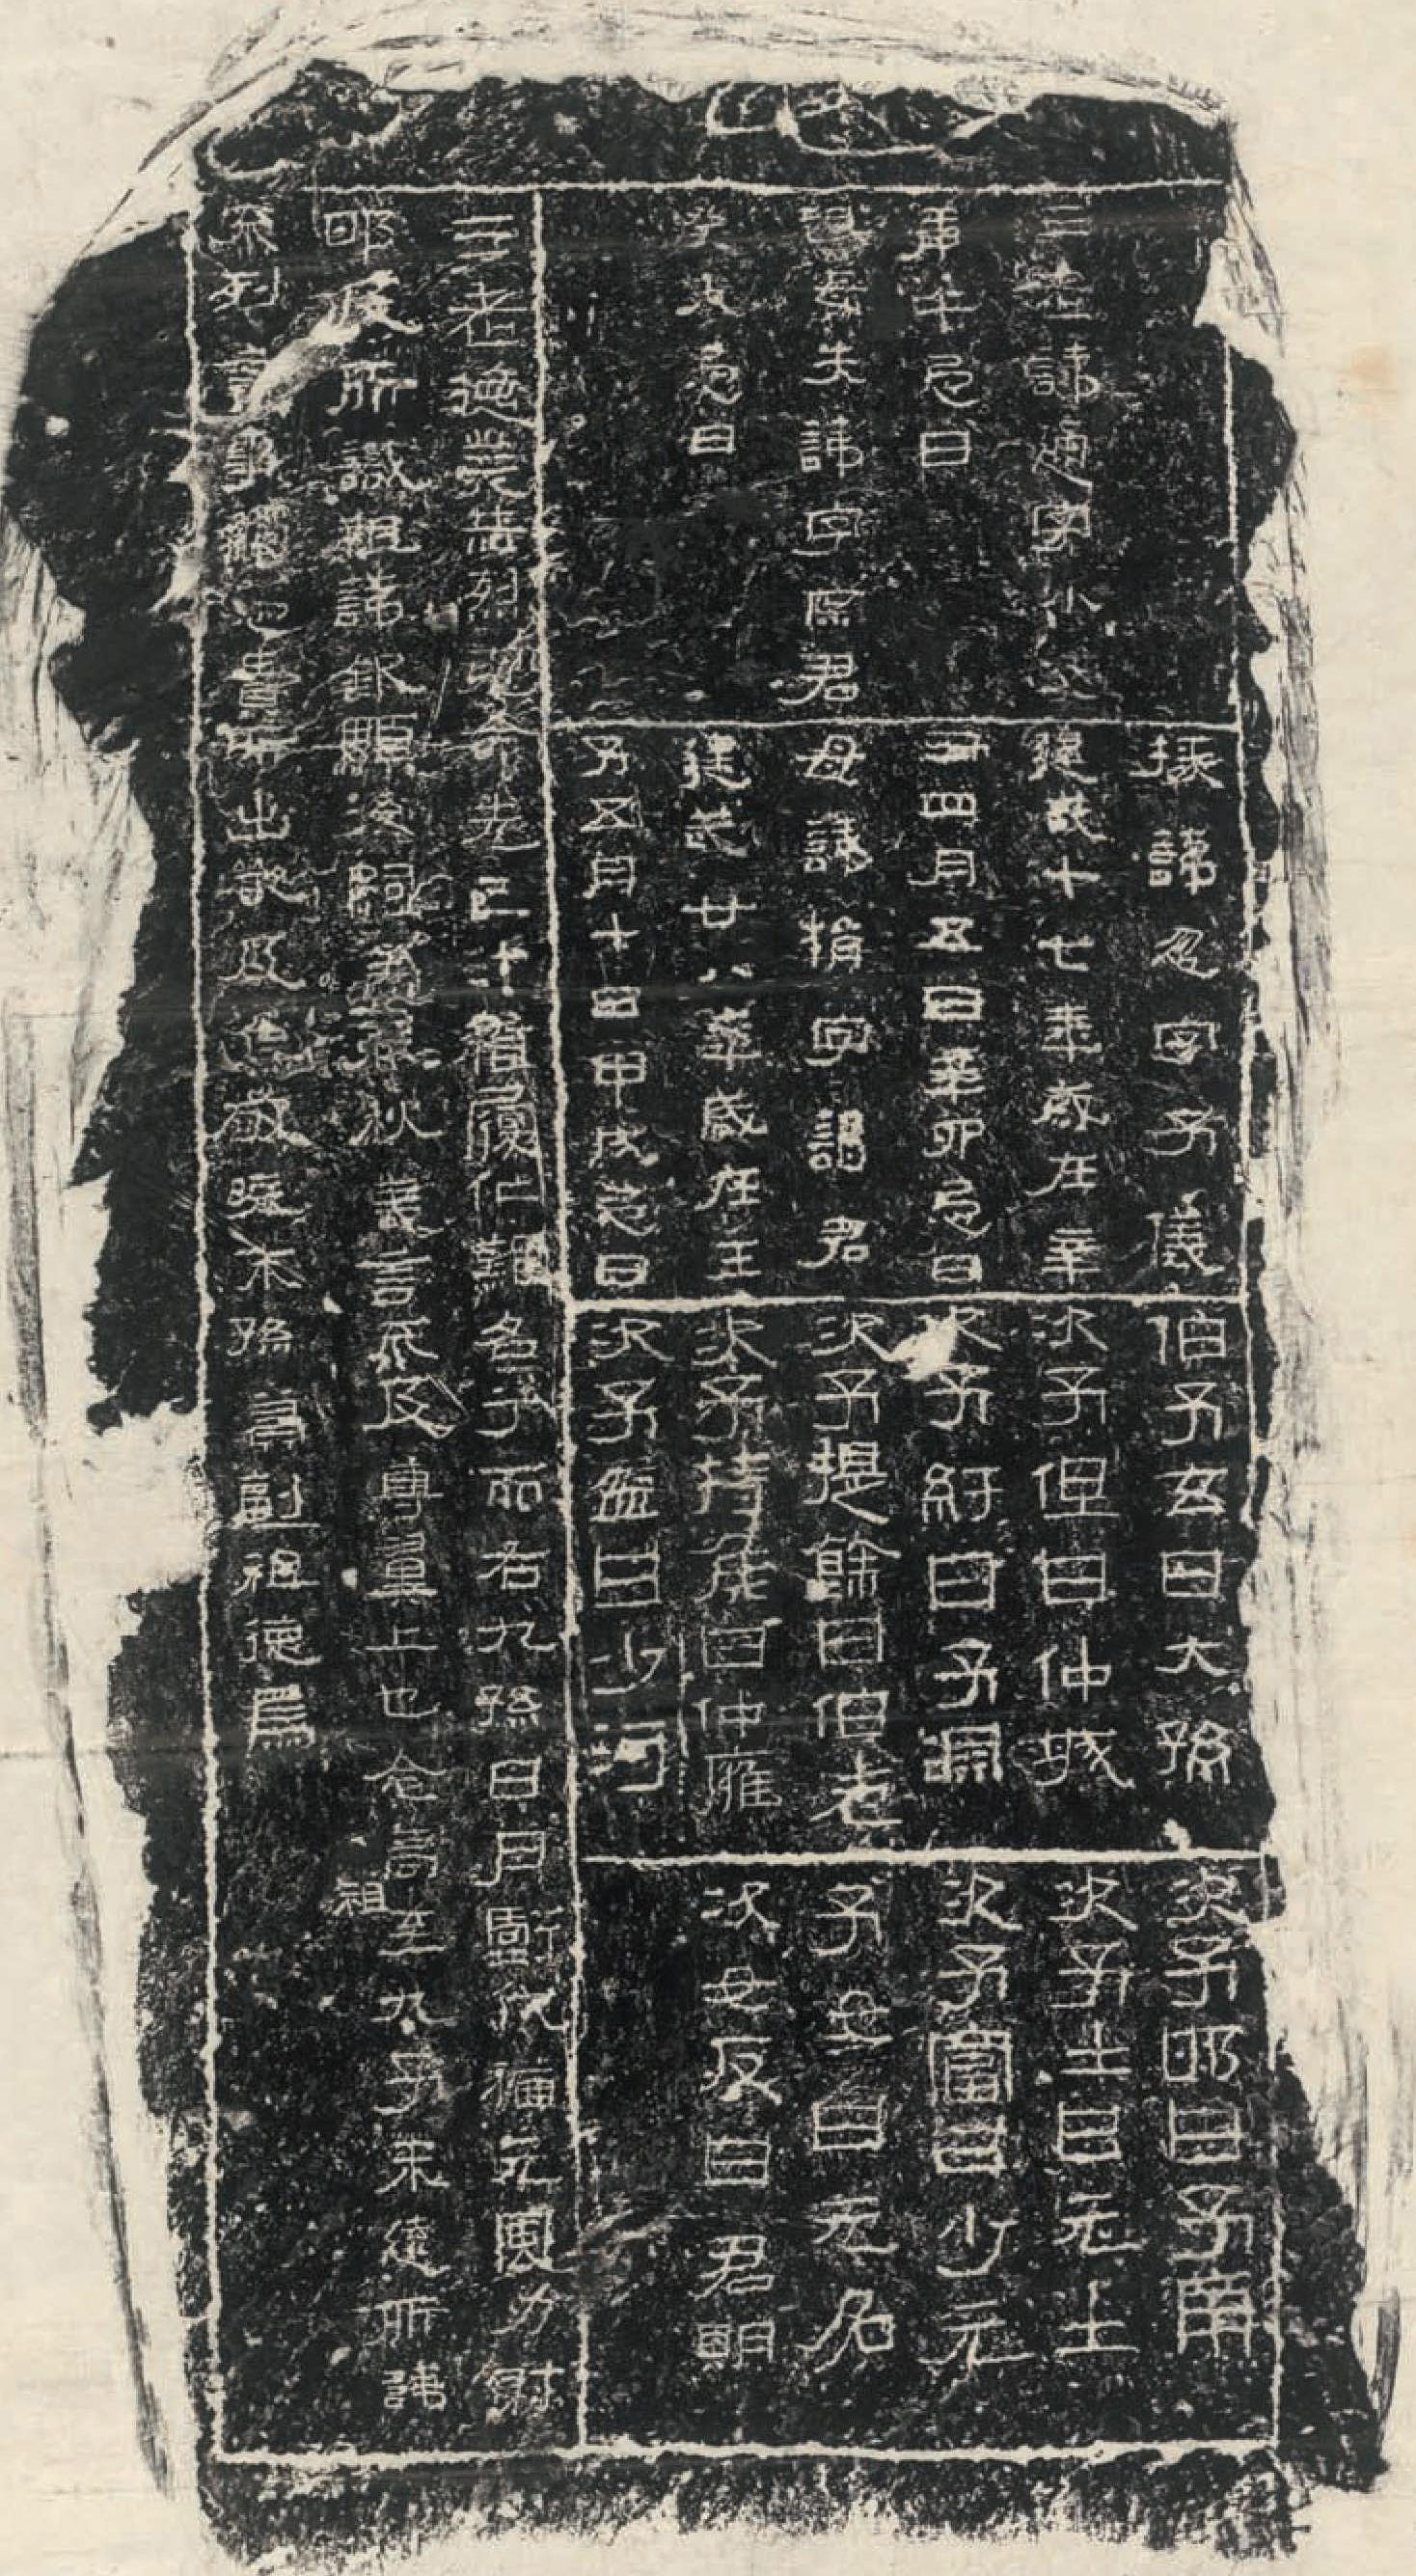 三老諱通字小父
庚午忌日
祖母失諱字宗君
癸未忌日
掾諱忽字子儀
建武十七年歲在辛
丑四月五日辛卯忌日
母諱捐字謁君
建武廿八年歲在壬
子五月十日甲戌忌日
伯子玄曰大孫
次子但曰仲城
次子紆曰子淵
次子提餘曰伯老
次子持侯曰仲廱
次子盆曰少河
次子邯曰子南
次子士曰元士
次子富曰少元
子女曰无名
次女反曰君明
三老德業赫烈克命先己汁稽履仁難名兮而右九孫日月虧代猶元風力射
邯及所識祖諱欽顯後嗣蓋春秋義言不及尊翼上也念高祖至九子未遠所諱
不列言事觸忌貴所出嚴及敬曉末孫冀副祖德焉